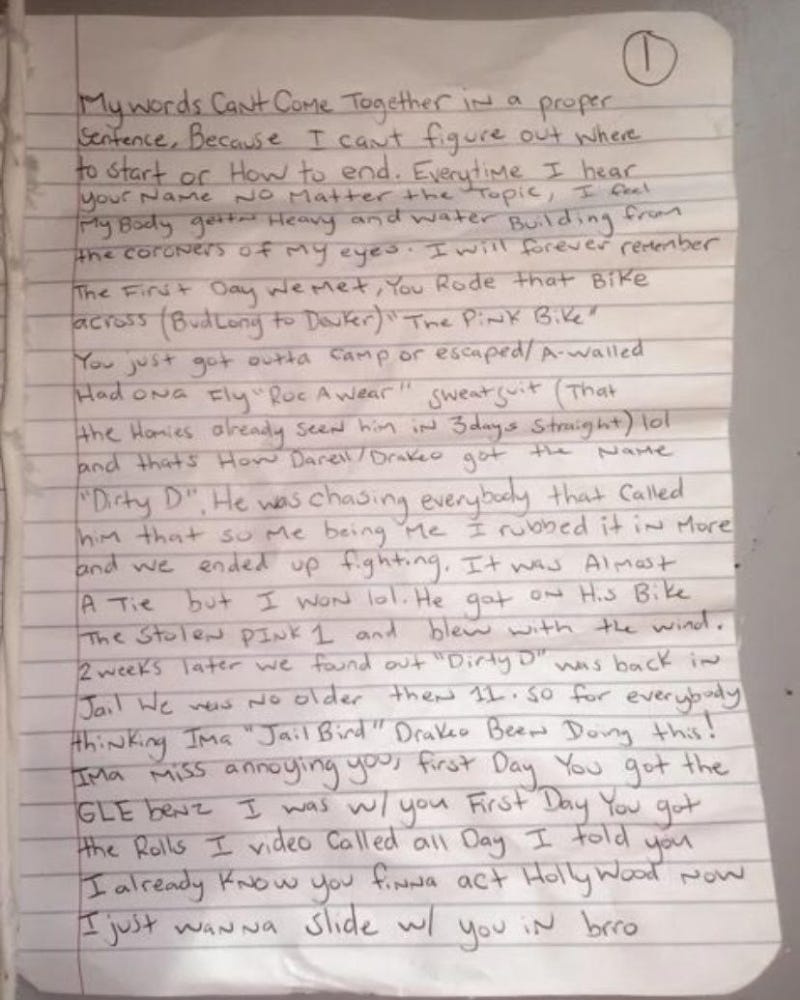 1
My words Cant Come Together in a proper
sentence, Because I cant figure out where
to start or How to end. Everytime I hear
your Name No Matter the Topic, I feel
My Body gettn Heavy and water Building from
the coroners of my eyes. I will forever remember
The First Day We Met, You Rode that Bike
across (BudLong to Denker) "The Pink Bike"
You just got outta Camp or escaped/A-walled
Had on a Fly "Roc A wear" sweatsuit (That
the Homies already seen him in 3 days straight) lol
and thats How Darell/Drakeo got the Name
"Dirty D". He was chasing everybody that Called
him that so Me being Me I rubbed it in More
and we ended up fighting. It was Almost
A Tie but I won lol. He got on His Bike
The Stolen Pink 1 and blew with the wind.
2 weeks later we found out "Dirty D" was back in
Jail We was No older then 11. so for everybody
thinking Ima "Jail Bird" Drakeo Been Doing this!
Ima Miss annoying you, first Day You got the
GLE benz I was w/ you First Day You got
the Rolls I video Called all Day I told you
I already Know you finna act HollyWood Now
I just wanna slide w/ you in brro